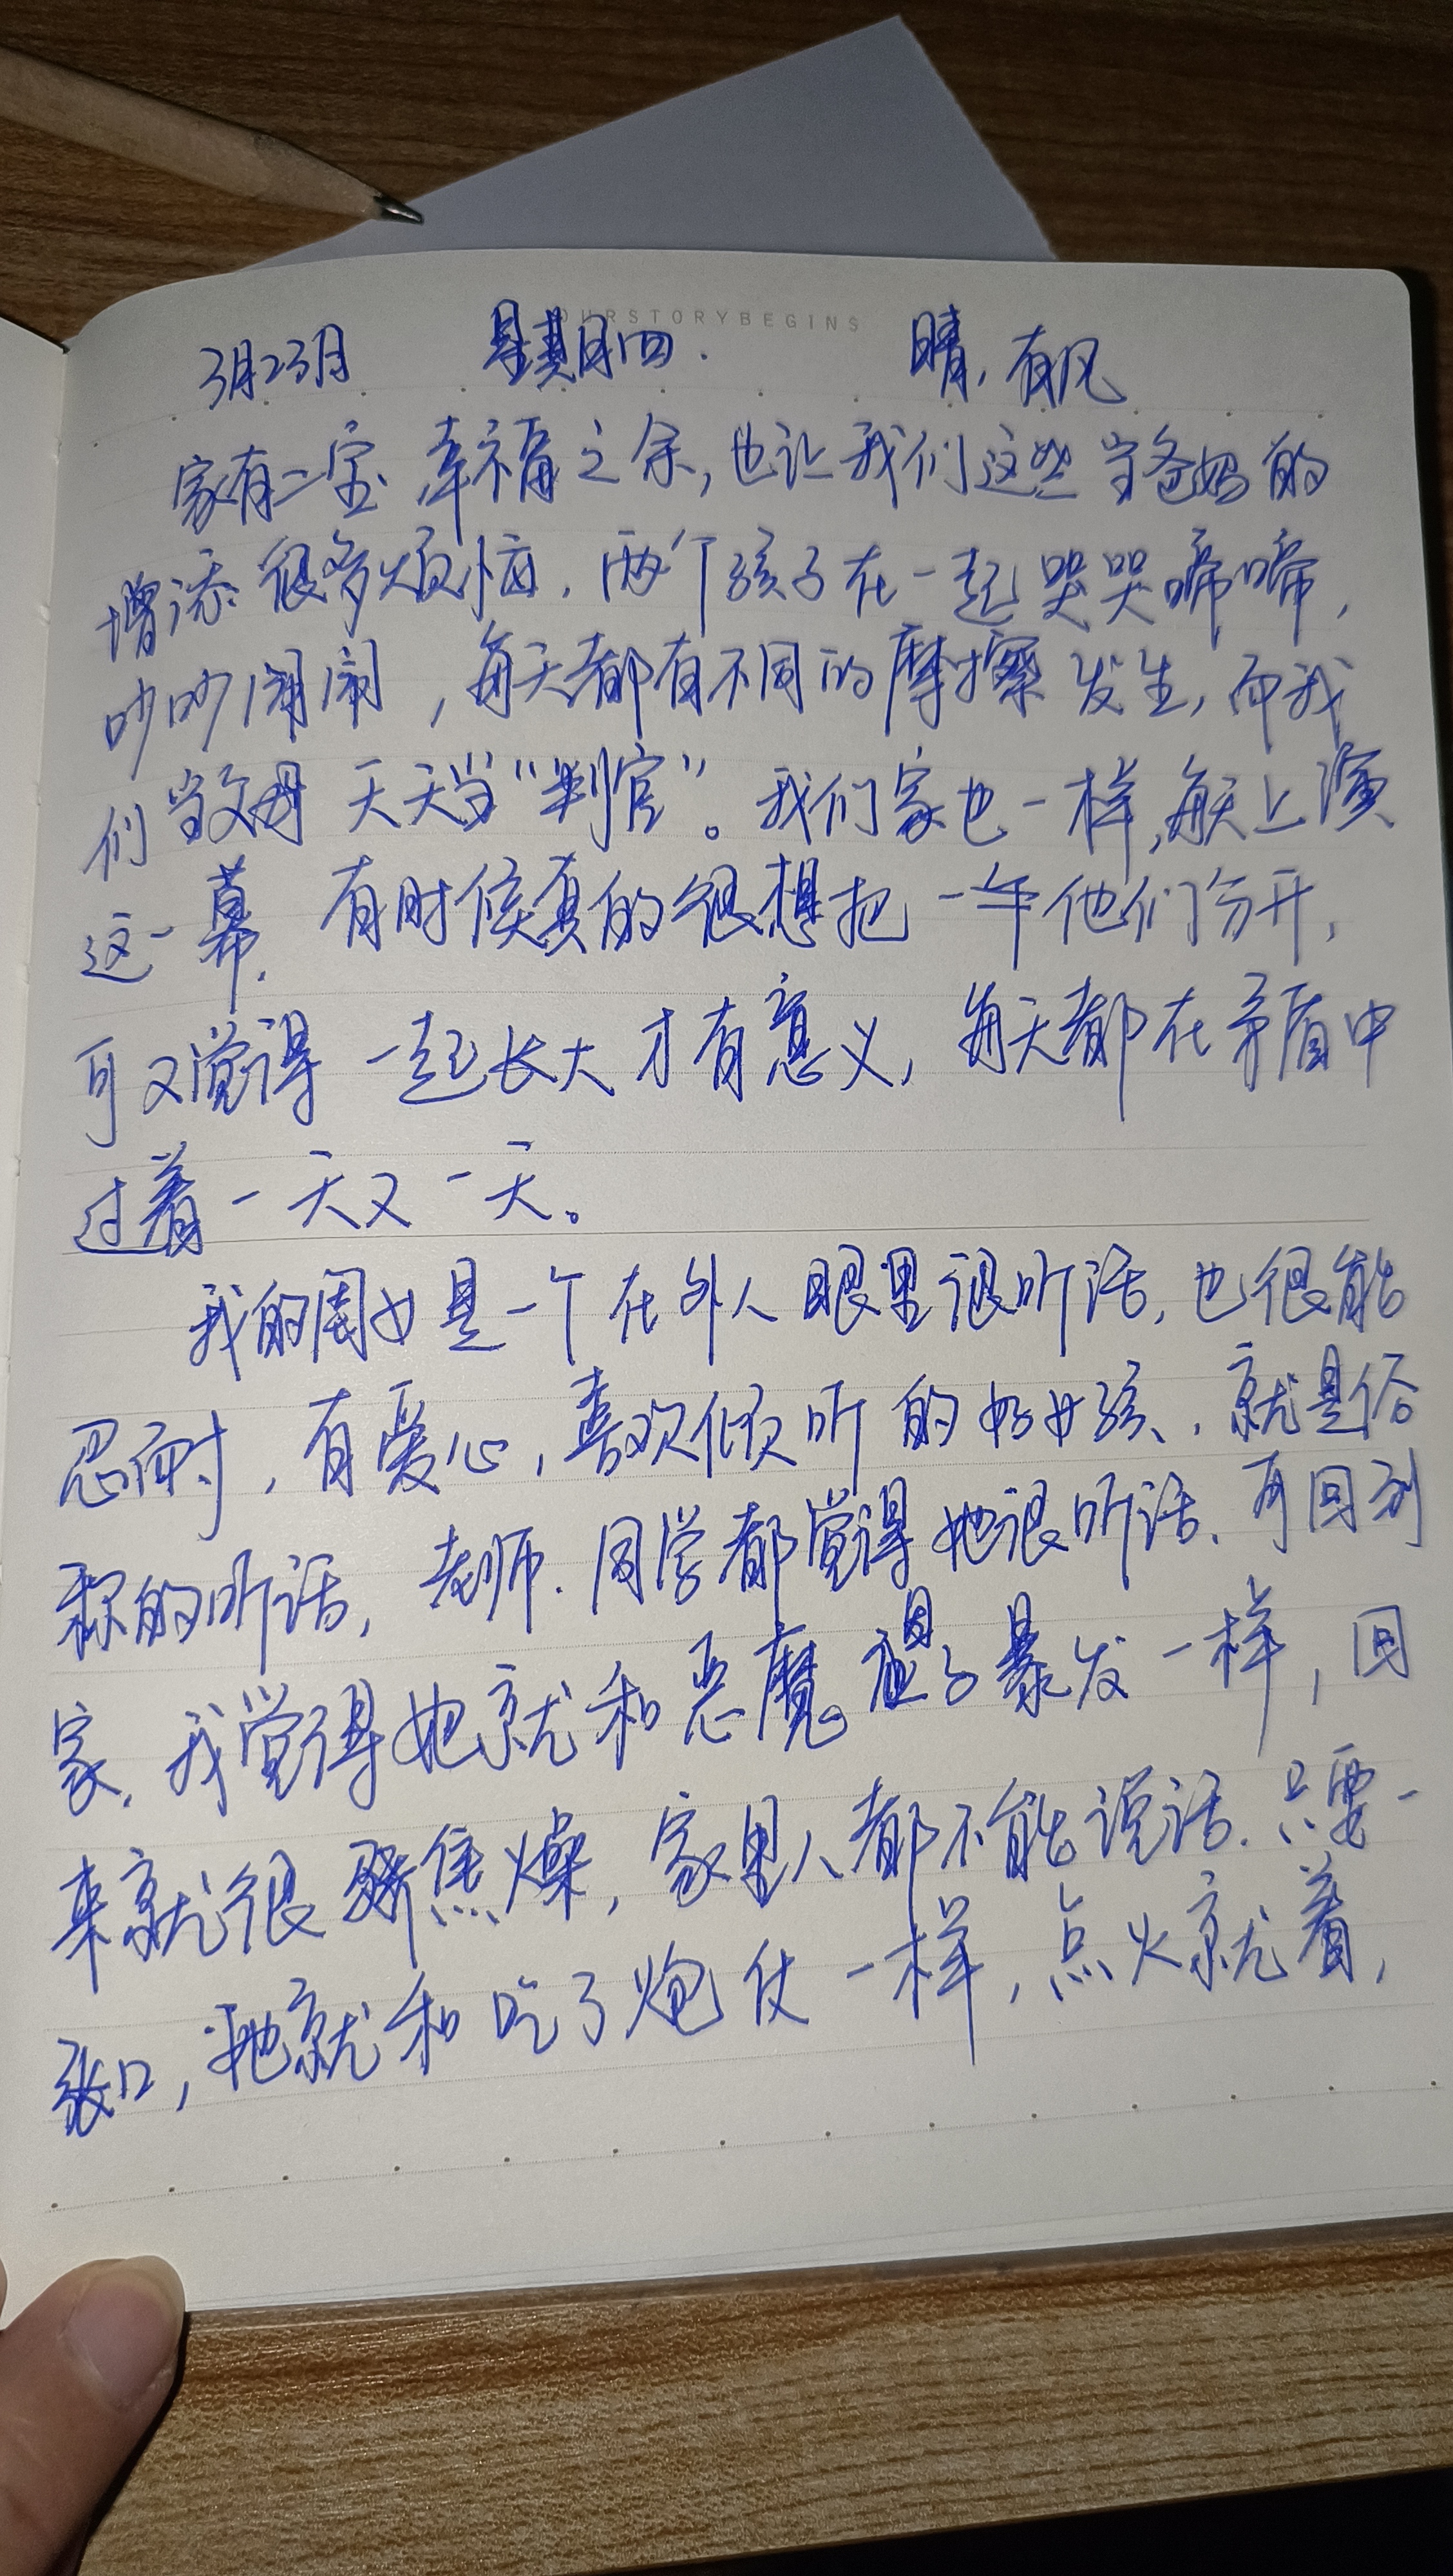 OURSTORYBEGINS
3月23日 星期四. 晴,有风
家有二宝 幸福之余,也让我们这些当爸妈的
增添很多烦恼,两个孩子在一起哭哭啼啼,
吵吵闹闹,每天都有不同的摩擦发生,而我
们当父母 天天当“判官”。我们家也一样,每天上演
这一幕,有时候真的很想把 他们分开,
可又觉得一起长大才有意义,每天都在矛盾中
过着一天又一天。
我的闺女是一个在外人眼里很听话,也很能
忍耐,有爱心,喜欢倾听的好女孩、,就是俗
称的听话,老师.同学都觉得她很听话,可回到
家,我觉得她就和恶魔 暴发一样,回
来就很 焦燥,家里人都不能说话.只要一
张口,她就和吃了炮仗一样,点火就着,